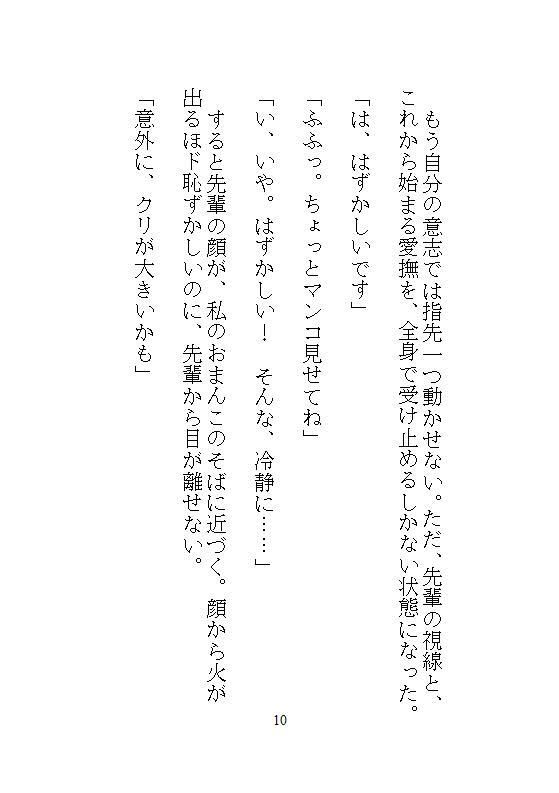 もう自分の意志では指先一つ動かせない。ただ、先輩の視線と、
これから始まる愛撫を、全身で受け止めるしかない状態になった。
「は、はずかしいです」
「ふふっ。ちょっとマンコ見せてね」
「い、いや。はずかしい！　そんな、冷静に……」
すると先輩の顔が、私のおまんこのそばに近づく。顔から火が
出るほド恥ずかしいのに、先輩から目が離せない。
「意外に、クリが大きいかも」
10